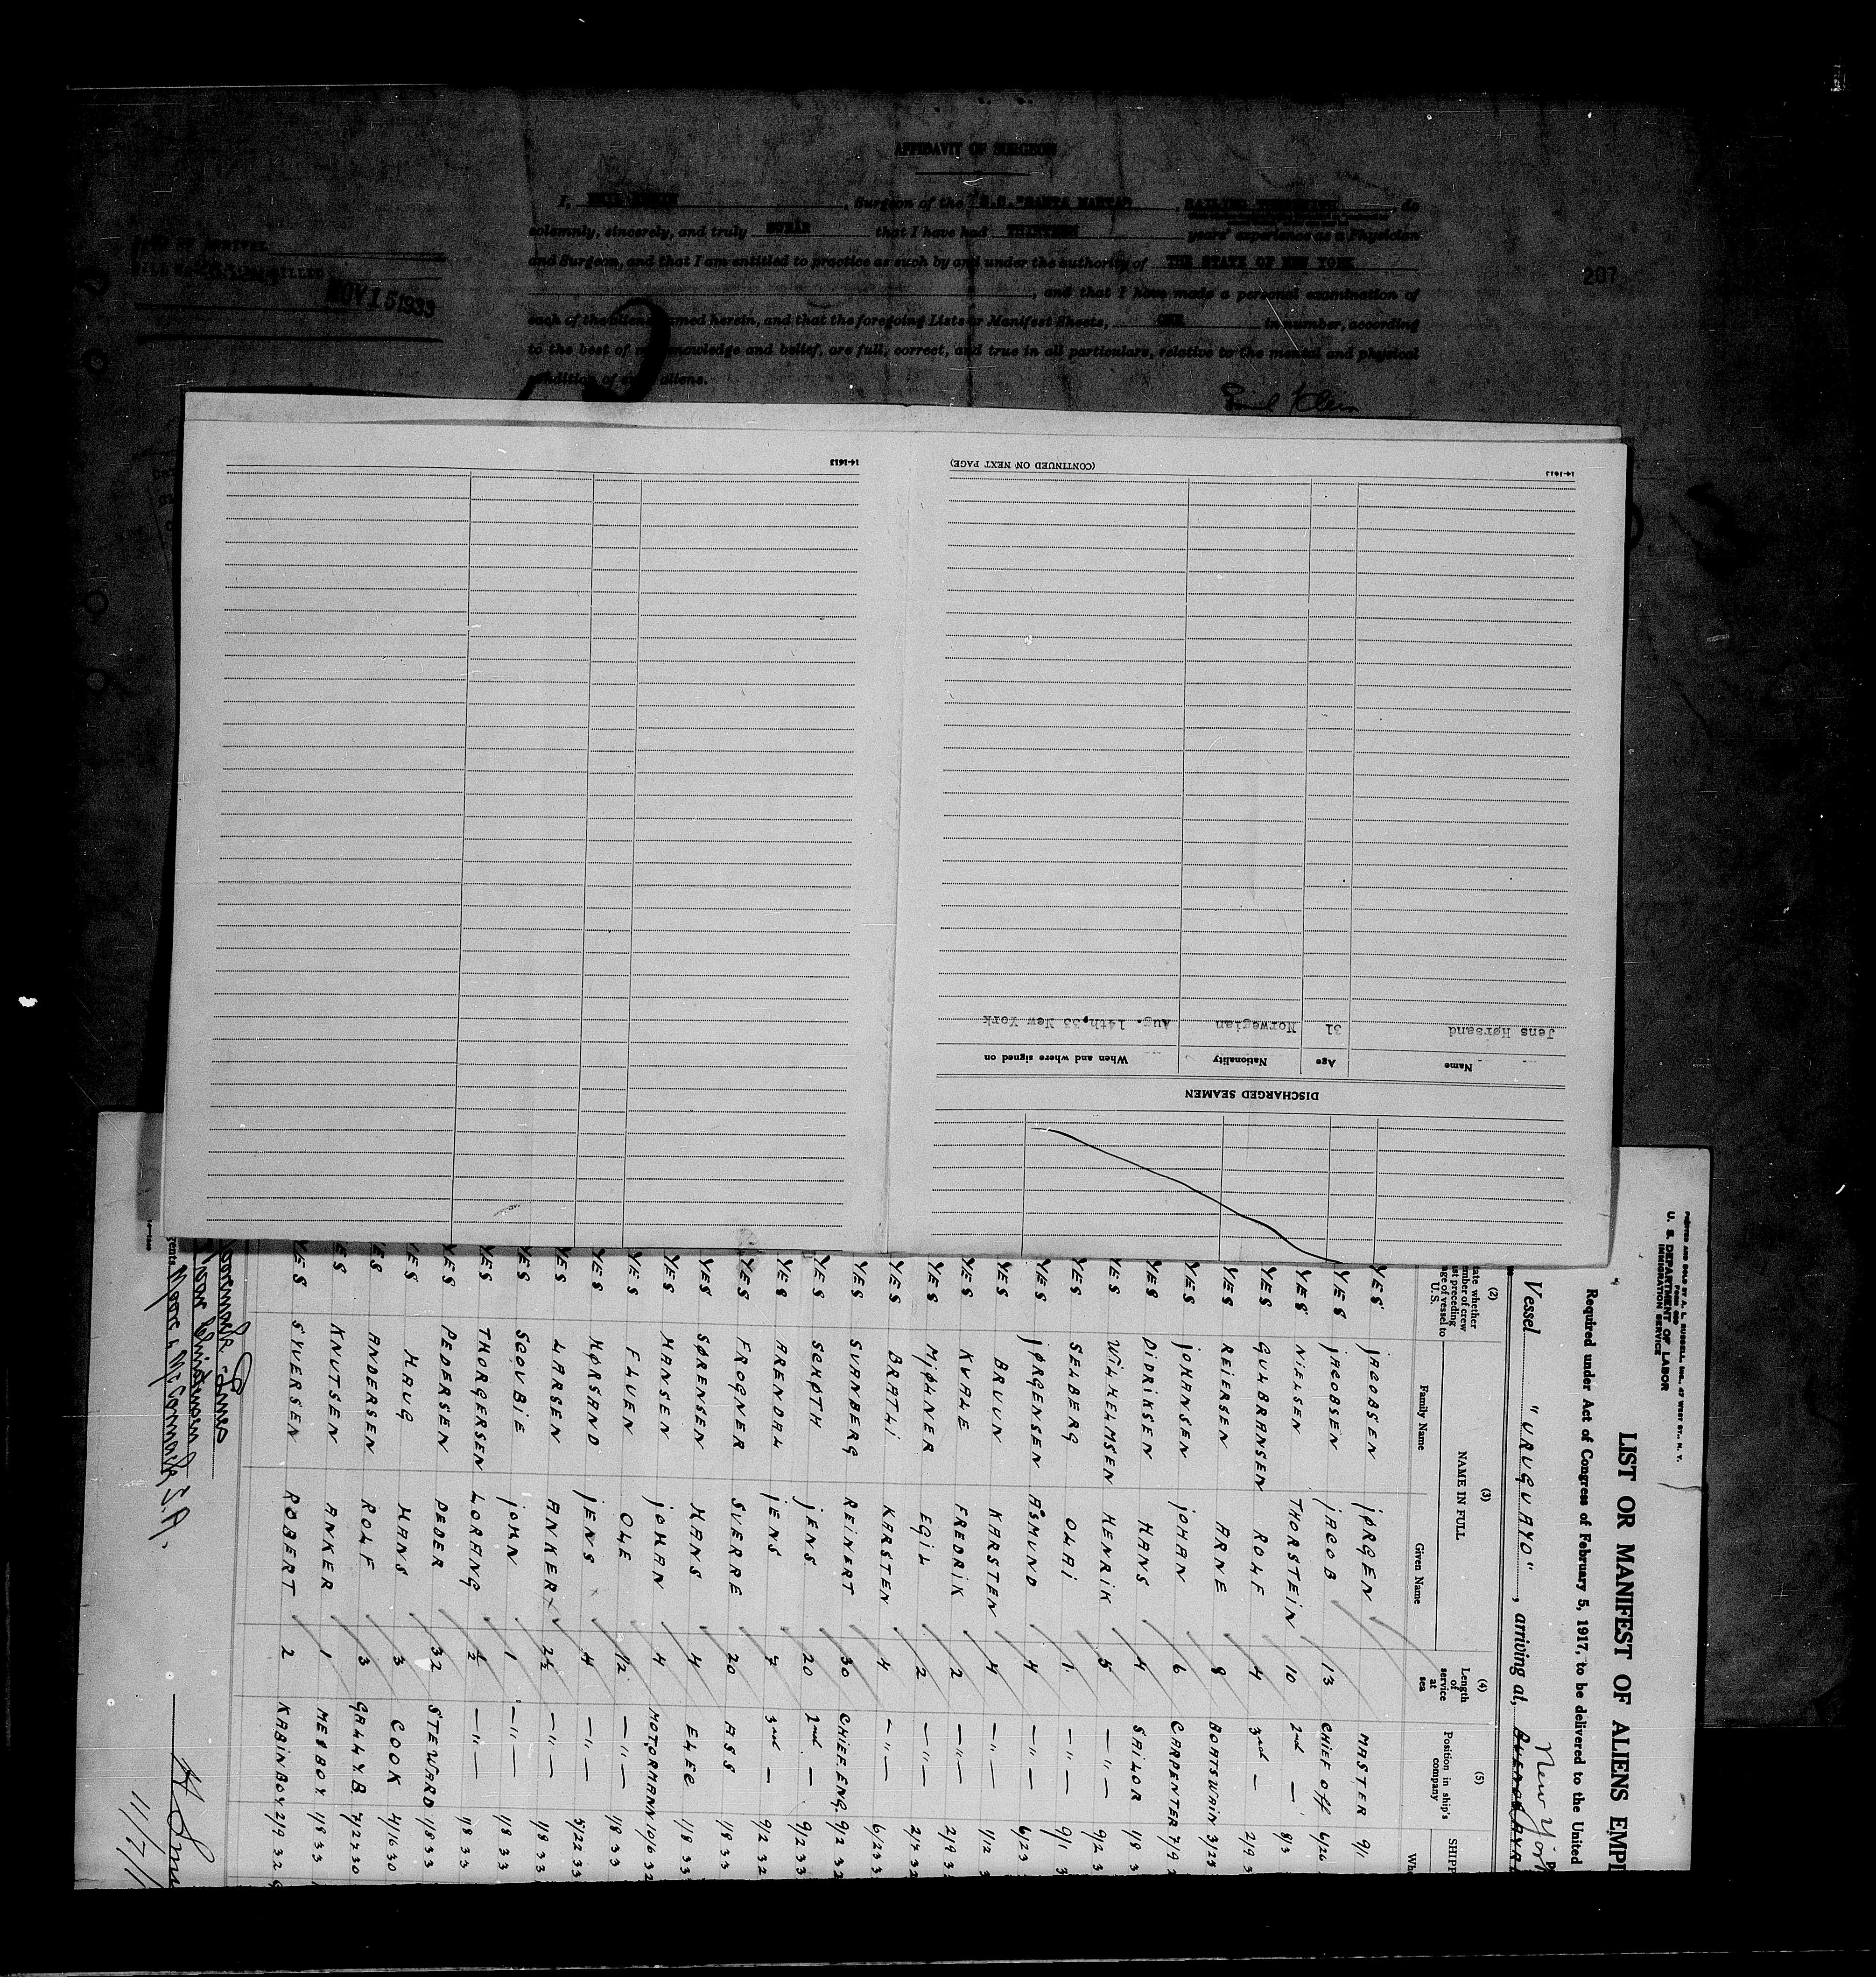 AFFIDAVIT OF SURGEON
I, EMIL KLEIN, Surgeon of the S.S. "SANTA MARTA", SAILING THEREWITH do
solemnly, sincerely, and truly SWEAR that I have had THIRTEEN years' experience as a Physician
and Surgeon, and that I am entitled to practice as such by and under the authority of THE STATE OF NEW YORK
, and that I have made a personal examination of
each of the aliens named herein, and that the foregoing Lists or Manifest Sheets, ONE in number, according
to the best of my knowledge and belief, are full, correct, and true in all particulars, relative to the mental and physical
condition of said aliens.
Emil Klein
NOV 15 1933
207
14-1613
(CONTINUED ON NEXT PAGE)
14-1613
DISCHARGED SEAMEN
Name Age Nationality When and where signed on
Jens Hørsand 31 Norwegian Aug. 14th,33 New York
PRINTED AND SOLD BY A. L. RUSSELL, INC., 47 WEST ST., N. Y.
Form 680
U. S. DEPARTMENT OF LABOR
IMMIGRATION SERVICE
LIST OR MANIFEST OF ALIENS EMPL
Required under Act of Congress of February 5, 1917, to be delivered to the United
Vessel "URUGUAYO", arriving at, New York
(2) (3) (4) (5)
NAME IN FULL
Family Name Given Name
Length of service at sea
Position in ship's company
SHIPP
Whe
YES JACOBSEN JØRGEN MASTER 9/1
YES JACOBSEN JACOB 13 CHIEF Off 6/26
YES NIELSEN THORSTEIN 10 2nd — 8/3
YES GULBRANSEN ROLF 4 3rd — 2/9 3
YES REIERSEN ARNE 8 BOATSWAIN 3/25
YES JOHANSEN JOHAN 6 CARPENTER 7/9 2
YES DIDRIKSEN HANS 4 SAILOR 1/8 3
YES WILHELMSEN HENRIK 5 — " — 9/2 3
YES SELBERG OLAI 1 — " — 9/1 3
YES JØRGENSEN ÅSMUND 4 — " — 6/23
YES BRUUN KARSTEN 4 — " — 1/12 3
YES KVALE FREDRIK 2 — " — 2/9 3
YES MJØLNER EGIL 2 — " — 2/4 32
YES BRATLI KARSTEN 4 — " — 6/23 3
YES SVANBERG REINERT 30 CHIEF.ENG. 9/2 32
YES SCHØTH JENS 20 2nd — 9/2 33
YES ARENDAL JENS 7 3rd — 9/2 32
YES FROGNER SVERRE 20 ASS 1/8 33
YES SØRENSEN HANS 4 ELEC 1/8 33
YES HANSEN JOHAN 4 MOTORMANN 10/6 32
YES FLUEN OLE 1/2 — " — 1/8 33
YES HØRSAND JENS 4 — " — 5/22 33
YES LARSEN ANKER 2½ — " — 1/8 33
YES SCOUBIE JOHN 1 — " — 1/8 33
YES THORGERSEN LORANG ½ — " — 1/8 33
YES PEDERSEN PEDER 32 STEWARD 1/8 33
YES HAUG HANS 3 COOK 4/16 30
YES ANDERSEN ROLF 3 GALLY.B. 7/27 30
YES KNUTSEN ANKER 1 MESBOY 1/8 33
YES SYVERSEN ROBERT 2 KABINBOY 2/9 32
Moore & McCormack, S.A.
11/7/